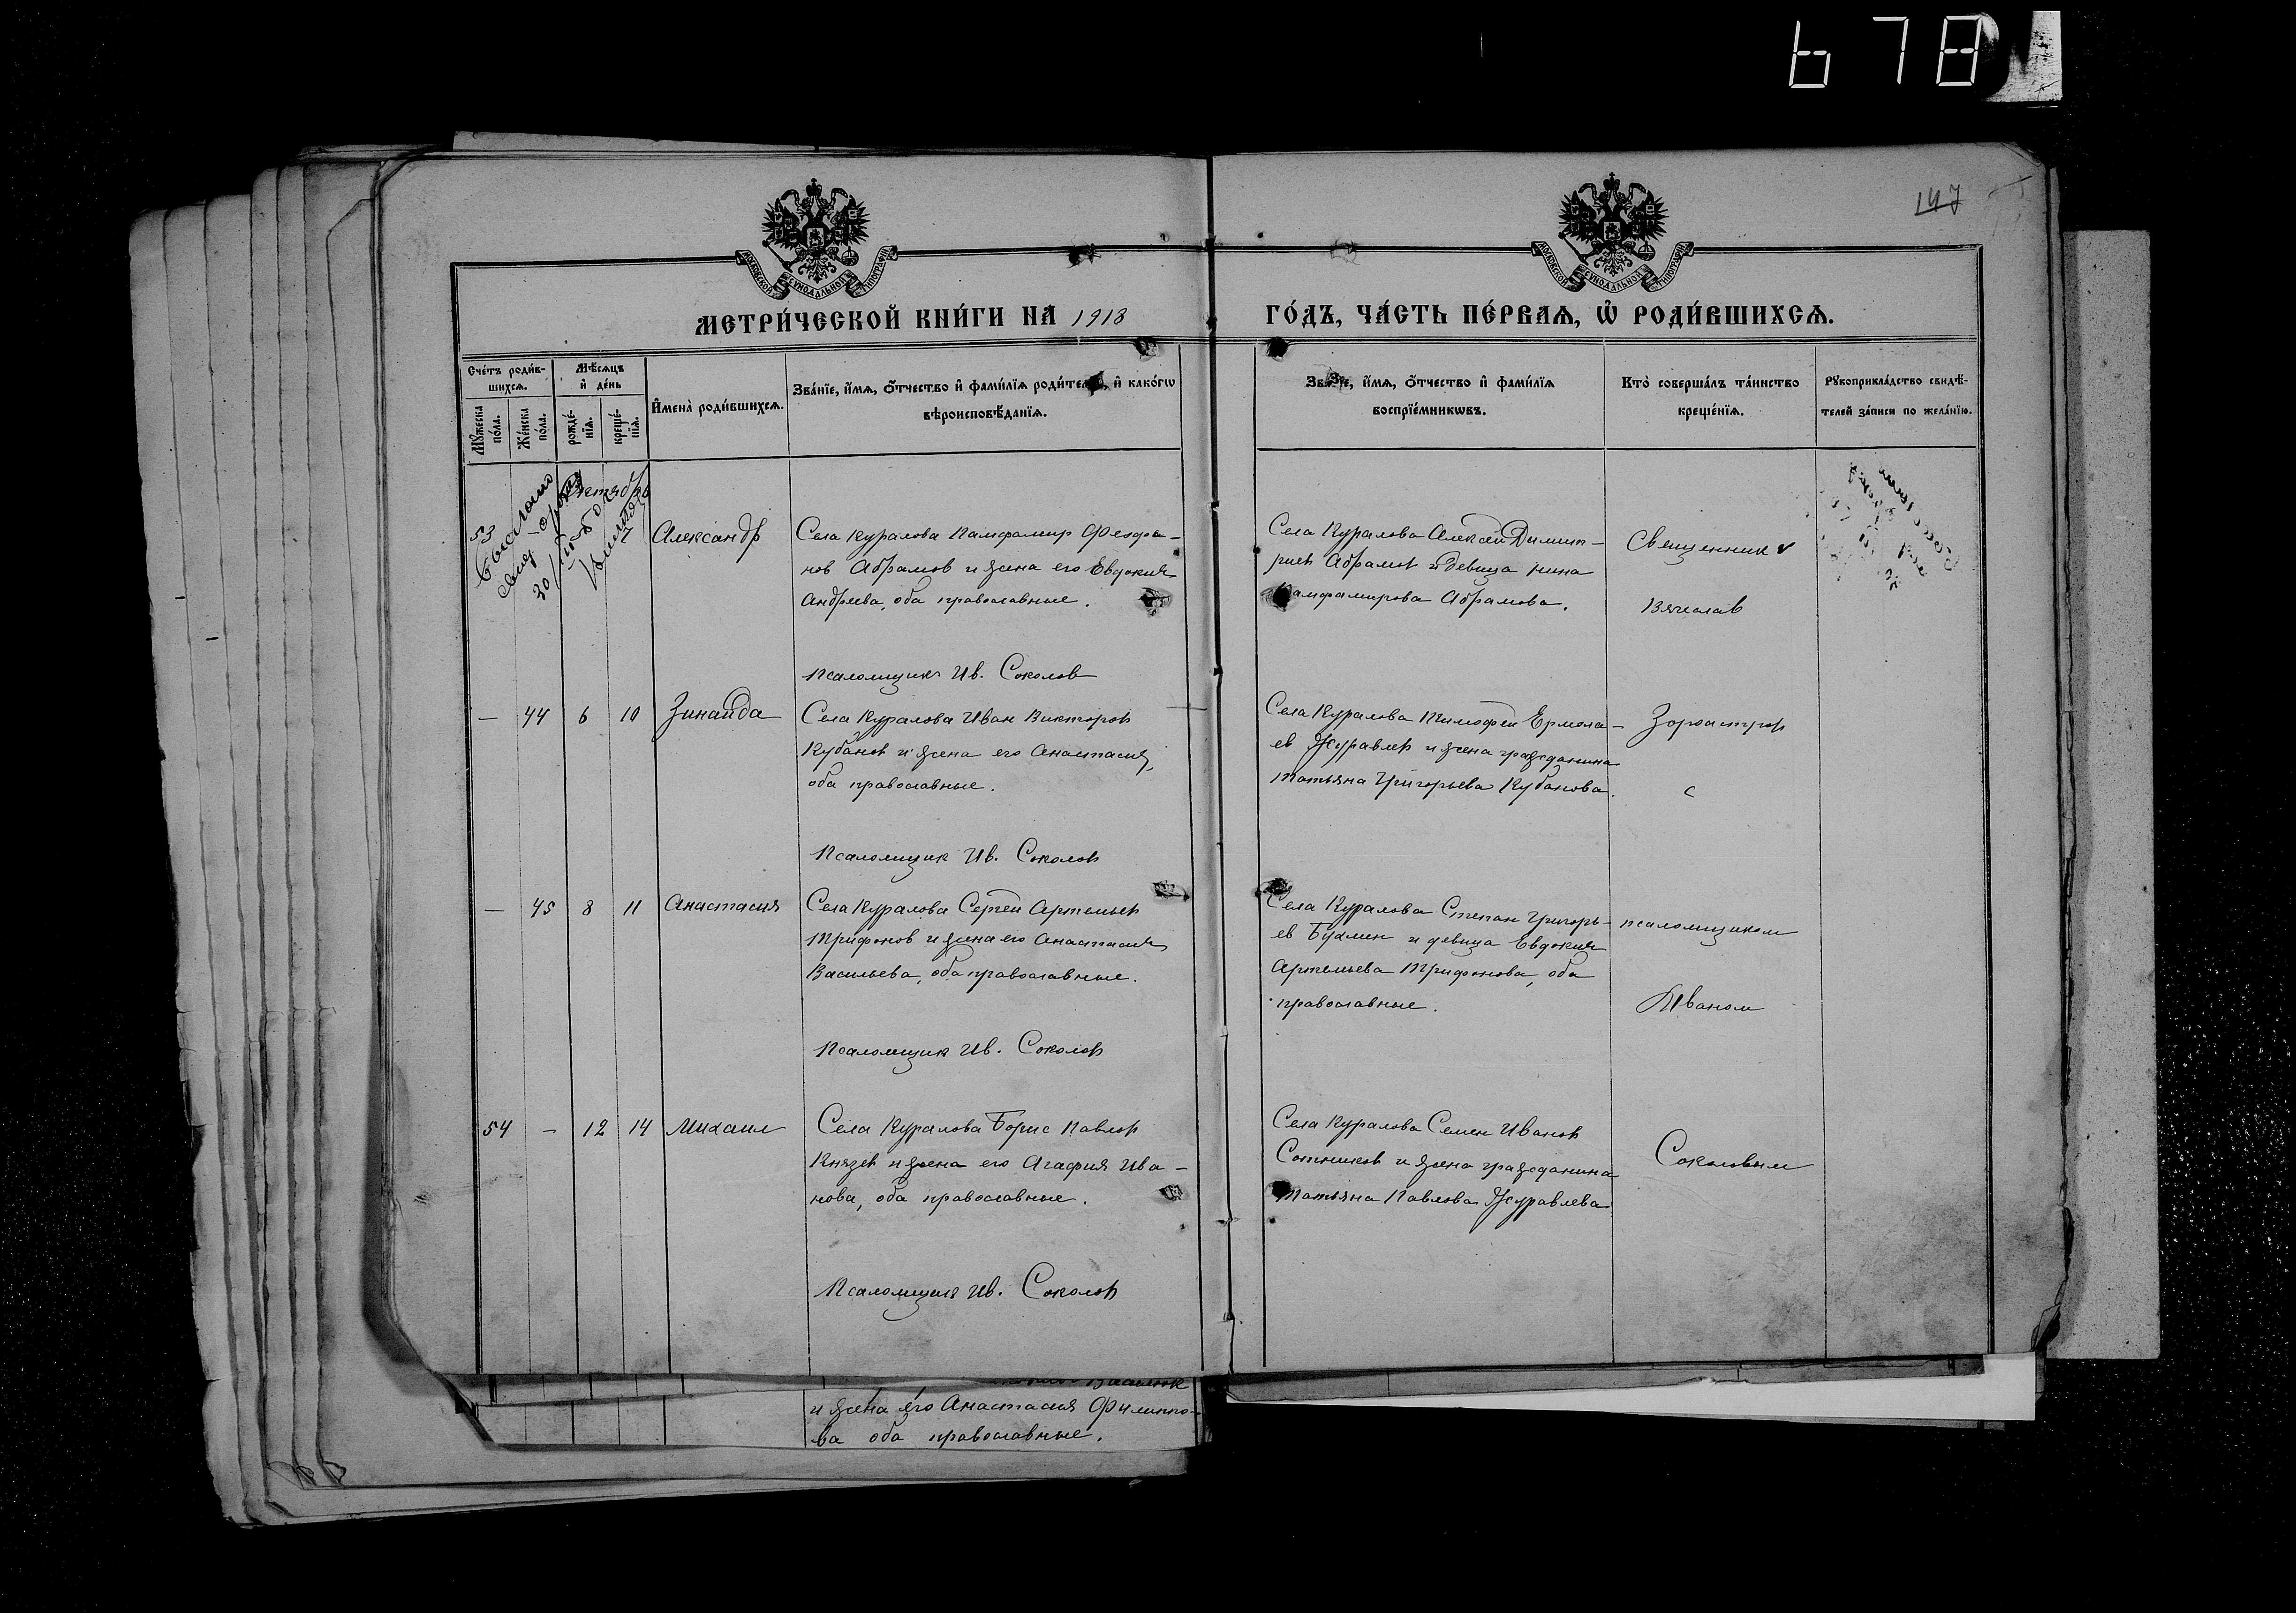 678
147
МОСКОВСКОЙ СУНОДАЛЬНОЙ ТИПОГРАФІИ
МОСКОВСКОЙ СУНОДАЛЬНОЙ ТИПОГРАФІИ
МЕТРИ́ЧЕСКОЙ КНИ́ГИ НА 1918
ГО́ДЪ, ЧА́СТЬ ПЕ́РВАѦ, Ѡ҆ РОДИ́ВШИХСѦ.
Сче́тъ роди́в-
шихсѧ.
Мꙋ́жеска по́ла.
Же́нска по́ла.
Мѣ́сѧцъ
и҆ де́нь
рожде́-
нїѧ.
креще́-
нїѧ.
И҆мена̀ роди́вшихсѧ.
Зва́нїе, и҆́мѧ, ѻ҆́тчество и҆ фами́лїѧ роди́телей, и҆ како́гѡ
вѣроисповѣ́данїѧ.
Зва́нїе, и҆́мѧ, ѻ҆́тчество и҆ фами́лїѧ
воспрїе́мникѡвъ.
Кто̀ соверша́лъ та́инство
креще́нїѧ.
Рꙋкоприкла́дство свидѣ́-
телей за́писи по жела́нїю.
Октябрь
53
Александр
Села Куралова Памфамир Феофа-
нов Абрамов и жена его Евдокия
Андреева, оба православные.
Псаломщик Ив. Соколов
Села Куралова Алексей Димит-
риев Абрамов и девица Нина
Памфамирова Абрамова.
Священник
Вячеслав
— 44 6 10 Зинаида
Села Куралова Иван Викторов
Кубанов и жена его Анастасия,
оба православные.
Псаломщик Ив. Соколов
Села Куралова Тимофей Ермола-
ев Журавлев и жена гражданина
Татьяна Григорьева Кубанова.
Зороастров
с
— 45 8 11 Анастасия
Села Куралова Сергей Артемьев
Трифонов и жена его Анастасия
Васильева, оба православные.
Псаломщик Ив. Соколов
Села Куралова Степан Григорь-
ев Бухмин и девица Евдокия
Артемьева Трифонова, оба
православные.
псаломщиком
Иваном
54 — 12 14 Михаил
Села Куралова Борис Павлов
Князев и жена его Агафия Ива-
нова, оба православные.
Псаломщик Ив. Соколов
Села Куралова Семен Иванов
Сотников и жена гражданина
Татьяна Павлова Журавлева
Соколовым
и жена его Анастасия Филиппо-
ва оба православные.